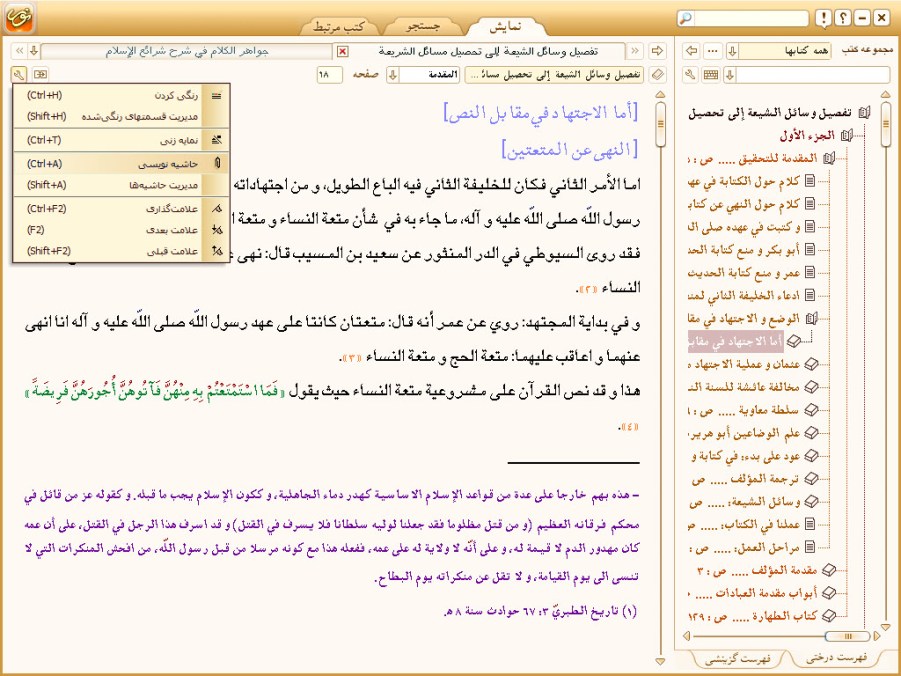 نمایش
جستجو
کتب مرتبط
مجموعه کتب
همه کتابها
تفصیل وسائل الشیعة إلی تحصیل مسائل الشریعة
جواهر الکلام في شرح شرائع الإسلام
تفصیل وسائل الشیعة إلی تحصیل مسائ...
المقدمة
صفحه
۱۸
رنگی کردن (Ctrl+H)
مدیریت قسمتهای رنگی‌شده (Shift+H)
نمایه زنی (Ctrl+T)
حاشیه نویسی (Ctrl+A)
مدیریت حاشیه‌ها (Shift+A)
علامت‌گذاری (Ctrl+F2)
علامت بعدی (F2)
علامت قبلی (Shift+F2)
[أما الاجتهاد في مقابل النص]
[النهی عن المتعتین]
اما الأمر الثاني فکان للخلیفة الثاني فیه الباع الطویل، و من اجتهاداته
رسول اللّه صلی اللّه علیه و آله، ما جاء به في شأن متعة النساء و متعة ا
فقد روی السیوطي في الدر المنثور عن سعید بن المسیب قال: نهی
النساء «۲».
و في بدایة المجتهد: روي عن عمر أنه قال: متعتان کانتا علی عهد رسول اللّه صلی اللّه علیه و آله انا انهی
عنهما و اعاقب علیهما: متعة الحج و متعة النساء «۳».
هذا و قد نص القرآن علی مشروعیة متعة النساء حیث یقول «فَمَا اسْتَمْتَعْتُمْ بِهِ مِنْهُنَّ فَآتُوهُنَّ أُجُورَهُنَّ فَرِیضَةً»
«۴».
– هذه بهم خارجا علی عدة من قواعد الإسلام الاساسیة کهدر دماء الجاهلیة، و ککون الإسلام یجب ما قبله. و کقوله عز من قائل في
محکم فرقانه العظیم (و من قتل مظلوما فقد جعلنا لولیه سلطانا فلا یسرف في القتل) و قد اسرف هذا الرجل في القتل، علی أن عمه
کان مهدور الدم لا قیمة له، و علی أنّه لا ولایة له علی عمه، ففعله هذا مع کونه مرسلا من قبل رسول اللّه، من افحش المنکرات التي لا
تنسی الی یوم القیامة، و لا تقل عن منکراته یوم البطاح.
(۱) تاریخ الطبريّ ۳: ۶۷ حوادث سنة ۸ ه.
تفصیل وسائل الشیعة إلی تحصیل
الجزء الأول
المقدمة للتحقیق ..... ص :
کلام حول الکتابة في عهد
کلام حول النهي عن کتاب
و کتبت في عهده صلی ال
أبو بکر و منع کتابة الحد
عمر و منع کتابة الحدیث
ادعاء الخلیفة الثاني لمنع
الوضع و الاجتهاد في مقا
أما الاجتهاد في مقابل
عثمان و عملیة الاجتهاد م
مخالفة عائشة للسنة الن
سلطة معاویة ..... ص :
علم الوضاعین أبو هریر
عود علی بدء: في کتابة و
ترجمة المؤلف ..... ص
وسائل الشیعة: ..... ص
عملنا في الکتاب: ..... ص
مراحل العمل: ..... ص :
مقدمة المؤلف ..... ص : ۳
أبواب مقدمة العبادات .....
کتاب الطهارة ..... ص : ۱۲۹
فهرست درختی
فهرست گزینشی